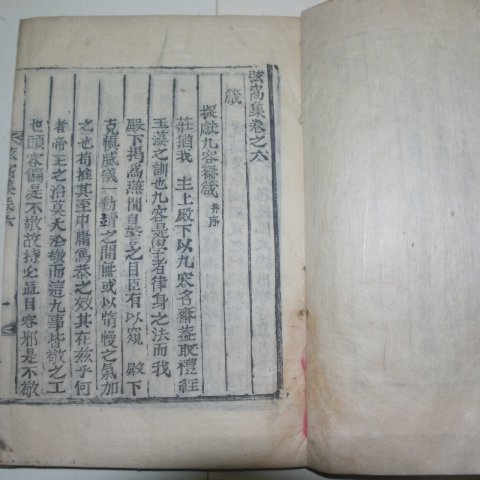 弦窩集卷之六
箴
擬獻九容齋箴 并序
莊猶我 主上殿下以九容名齋蓋取禮經
玉藻之訓也九容是學者律身之法而我
殿下揭爲燕閒自警之目臣有以窺 殿下
克愼威儀一動靜之間無或以惰慢之氣加
之也苟推其至中庸篤恭之效其在玆乎何
者帝王之治莫大於敬而這九事皆敬之工
也頭容偏是不敬故持必直目容邪是不敬
弦窩集卷六
一